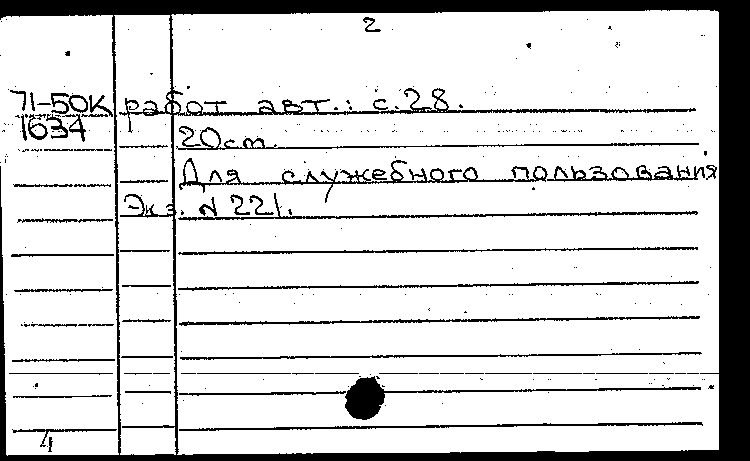 2
71-50К работ авт.: с.28.
1634 20см.
Для служебного пользования
Экз. N 221.
4